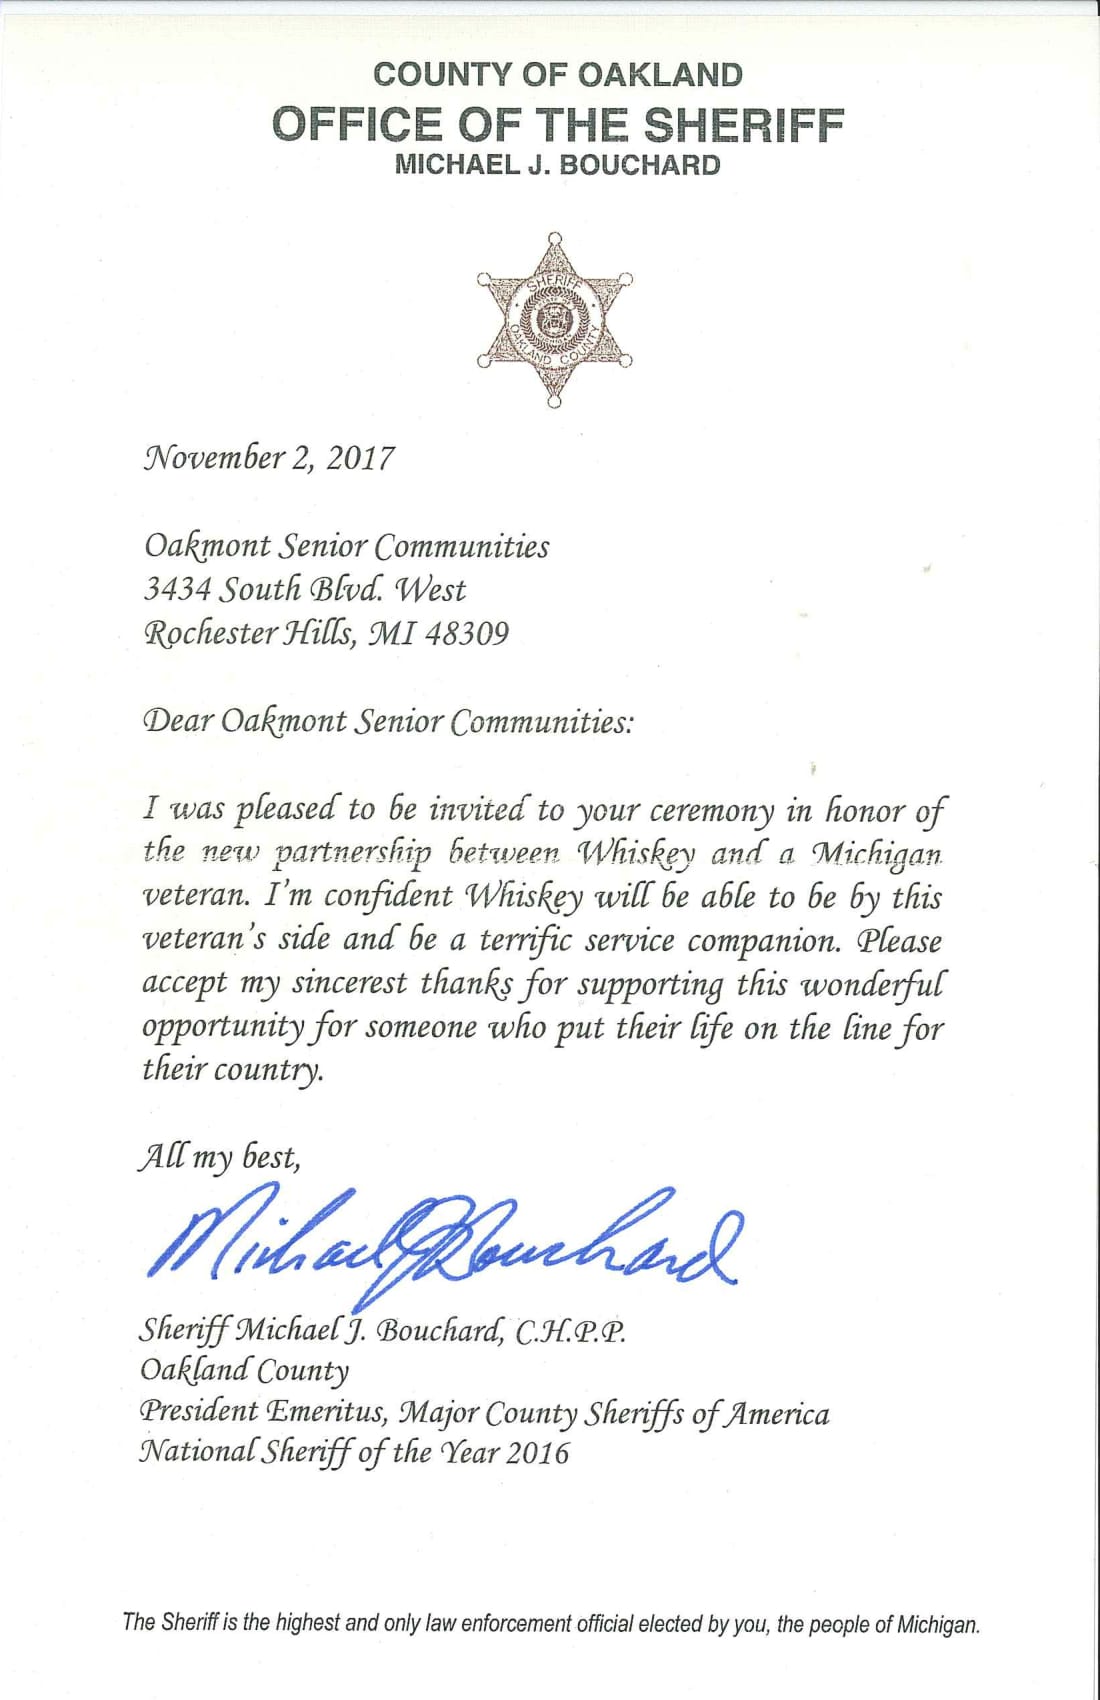 COUNTY OF OAKLAND
OFFICE OF THE SHERIFF
MICHAEL J. BOUCHARD
SHERIFF
OAKLAND COUNTY
November 2, 2017
Oakmont Senior Communities
3434 South Blvd. West
Rochester Hills, MI 48309
Dear Oakmont Senior Communities:
I was pleased to be invited to your ceremony in honor of
the new partnership between Whiskey and a Michigan
veteran. I'm confident Whiskey will be able to be by this
veteran's side and be a terrific service companion. Please
accept my sincerest thanks for supporting this wonderful
opportunity for someone who put their life on the line for
their country.
All my best,
Michael J Bouchard
Sheriff Michael J. Bouchard, C.H.P.P.
Oakland County
President Emeritus, Major County Sheriffs of America
National Sheriff of the Year 2016
The Sheriff is the highest and only law enforcement official elected by you, the people of Michigan.